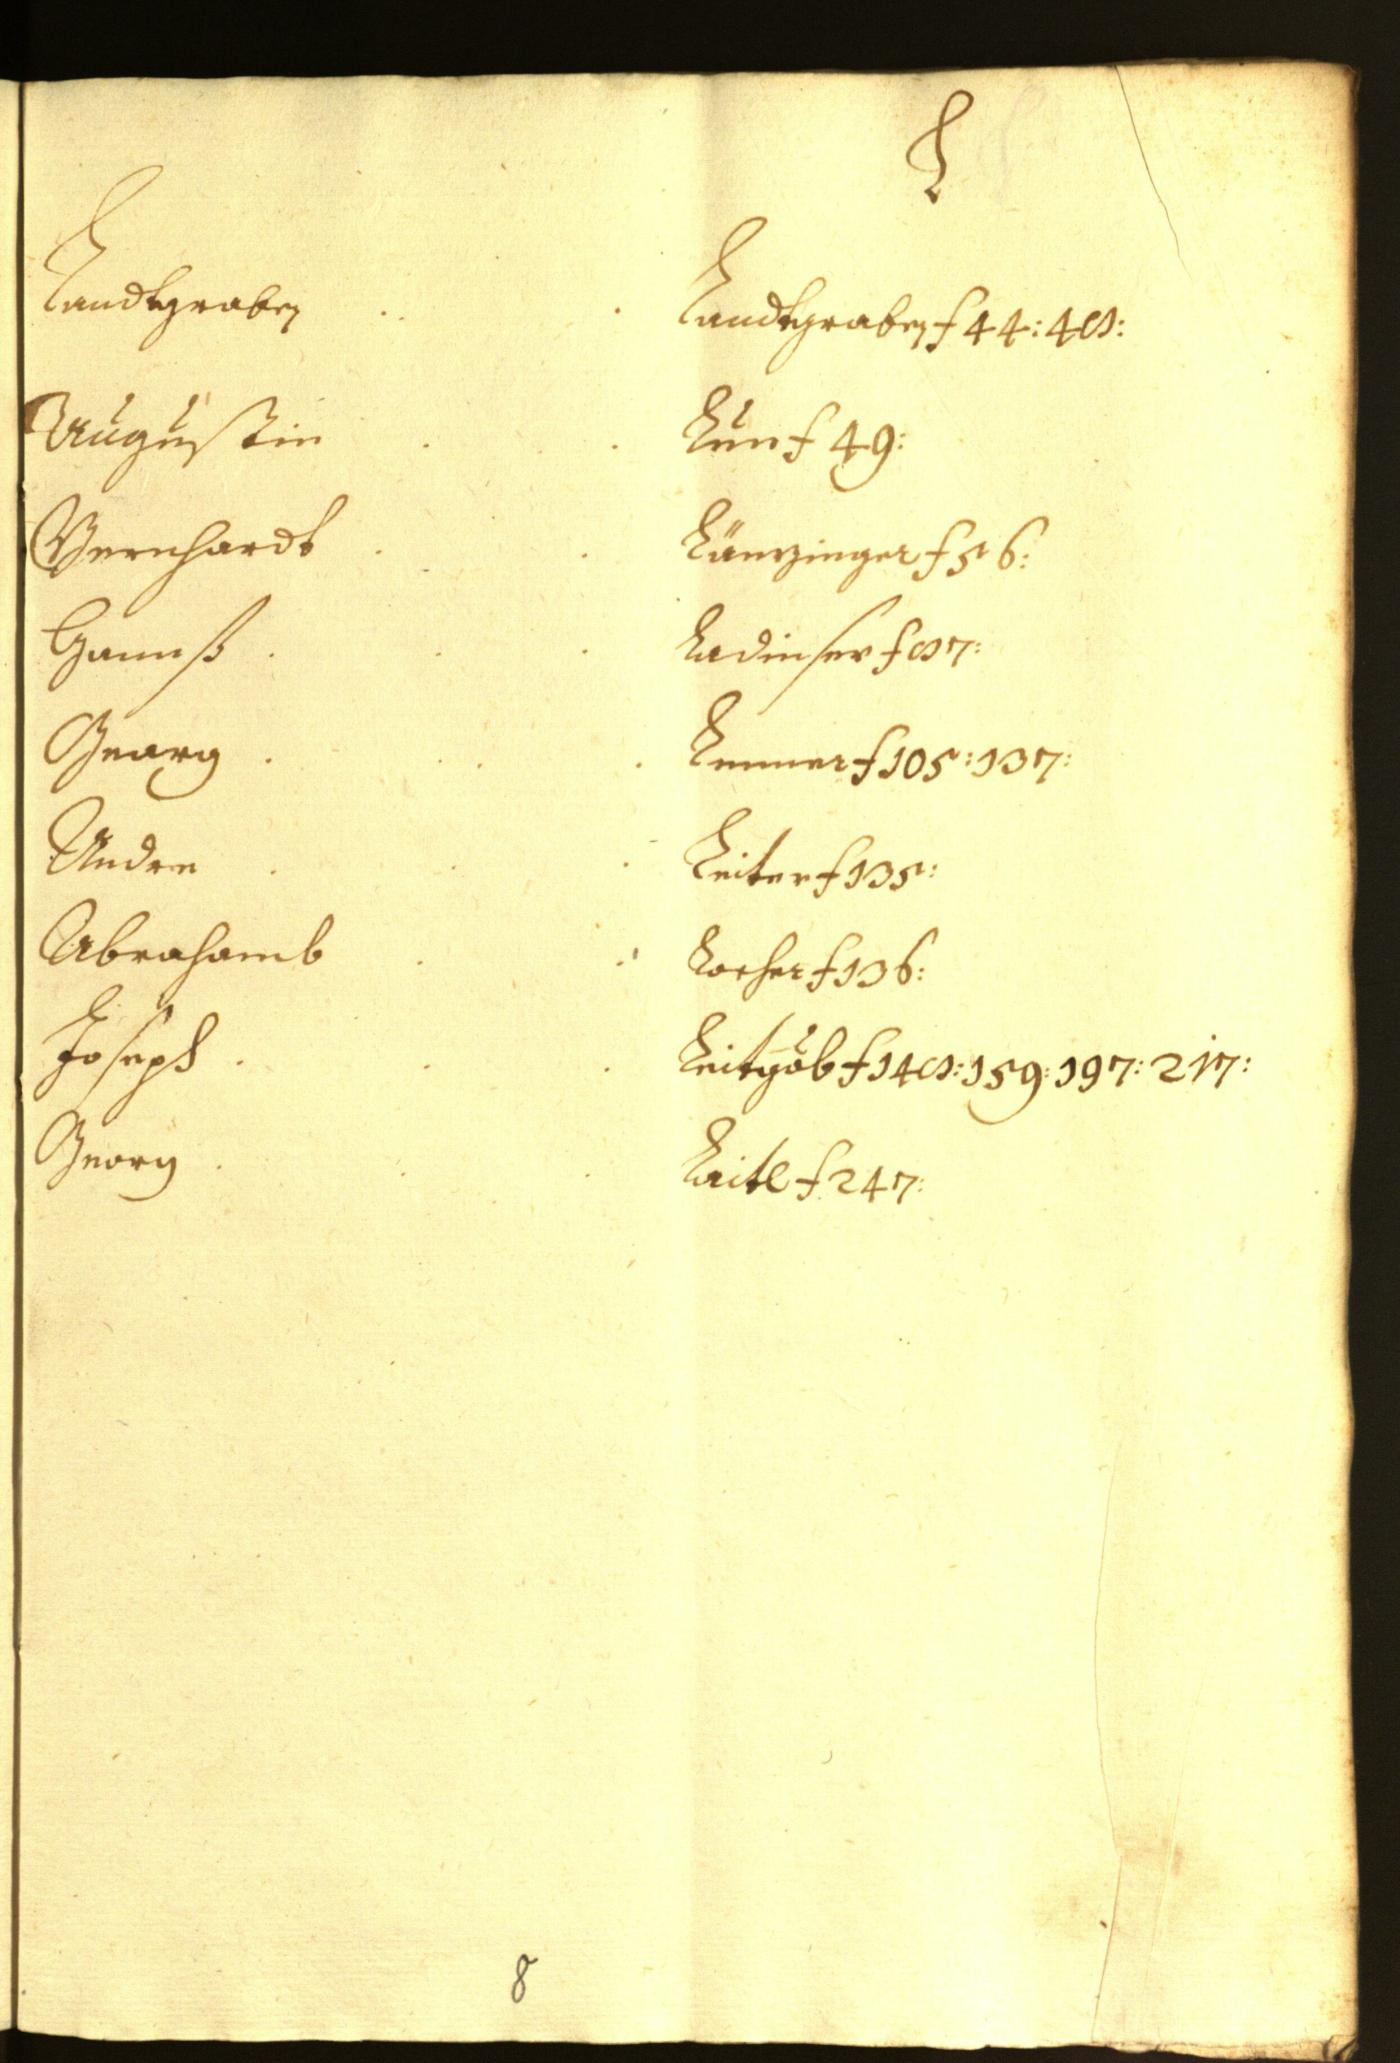 L
Landtgraben . . . Landtgraben f 44: 48:
Augustin . . Lun f 49:
Bernhardt . . Länzinger f 56:
Hannß . . . Ladinser f 87:
Georg . . . Lenner f 105: 137:
Andre . . . Leiter f 135:
Abrahamb . . Locher f 136:
Joseph . . . Leitgöb f 148: 159: 197: 217:
Georg . . . Laitl f 247:
8